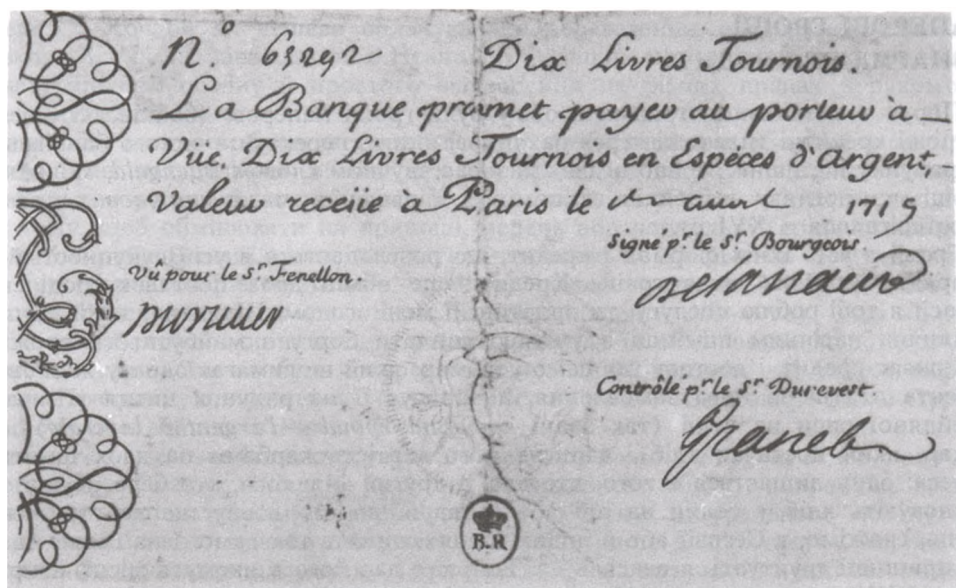 N.º 63292 Dix Livres Tournois.
La Banque promet payer au porteur à
Vüe, Dix Livres Tournois en Espèces d'Argent
valeur receüe à Paris le 1719
Signé p.r le S.r Bourgeois.
Vû pour le S.r Fenellon.
Contrôlé p.r le S.r Durevest.
Granet
B.R